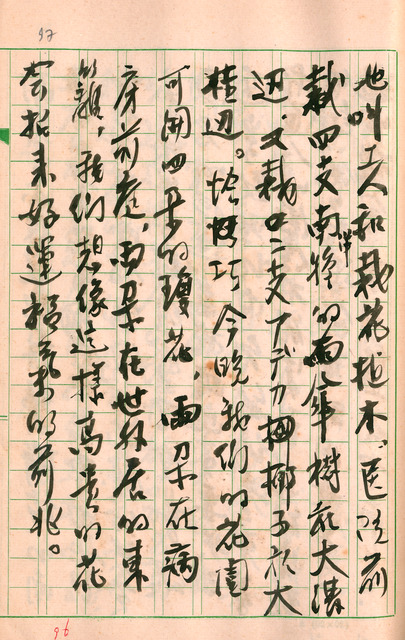 97
他叫工人和栽花植木。医院前
栽四支南洋的雨傘樹在大溝
邊。又栽四二支アデカ椰子在大
樓邊。恰恰巧今晚我們的花園
可開四朵的瓊花，兩朵在病
房前庭，兩朵在世外居的東
籬，我們想像這樣高貴的花
会招來好運福氣的前兆。
96